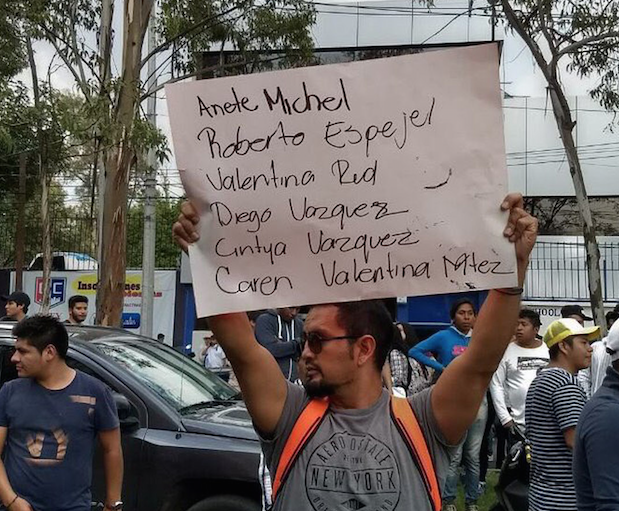 Anete Michel
Roberto Espejel
Valentina Red
Diego Vazquez
Cintya Vazquez
Caren Valentina
AERO
NEW YORK